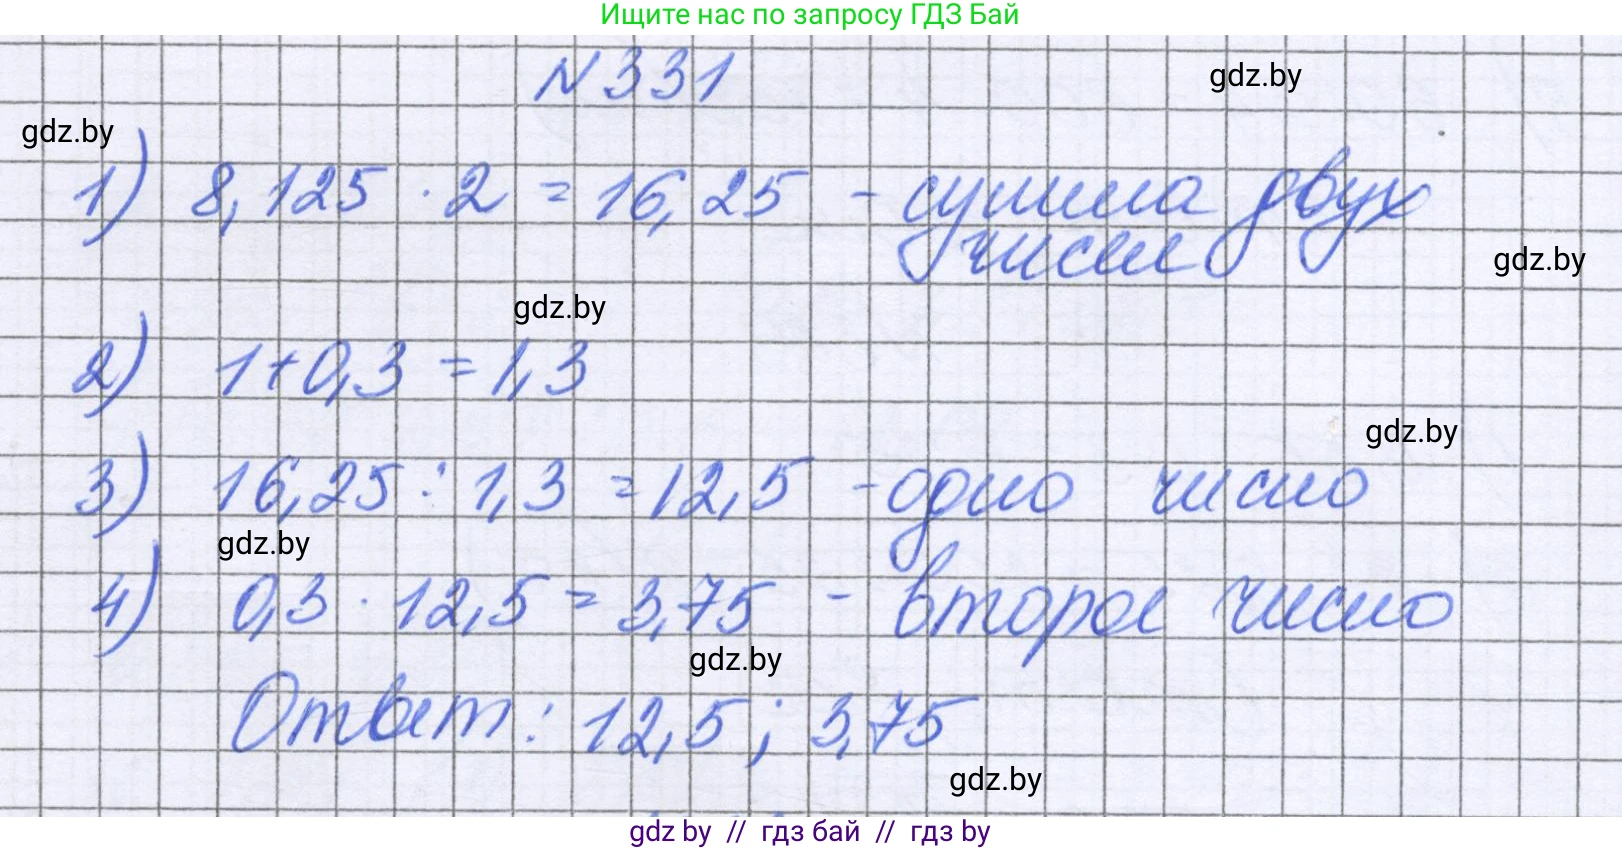 Ищите нас по запросу ГДЗ Бай
N 331
gdz.by
gdz.by
1) 8,125 · 2 = 16,25 - сумма двух
чисел
gdz.by
gdz.by
2) 1+0,3 = 1,3
gdz.by
3) 16,25 : 1,3 = 12,5 - одно число
gdz.by
4) 0,3 · 12,5 = 3,75 - второе число
gdz.by
Ответ: 12,5 ; 3,75
gdz.by
gdz by // гдз бай // гдз by